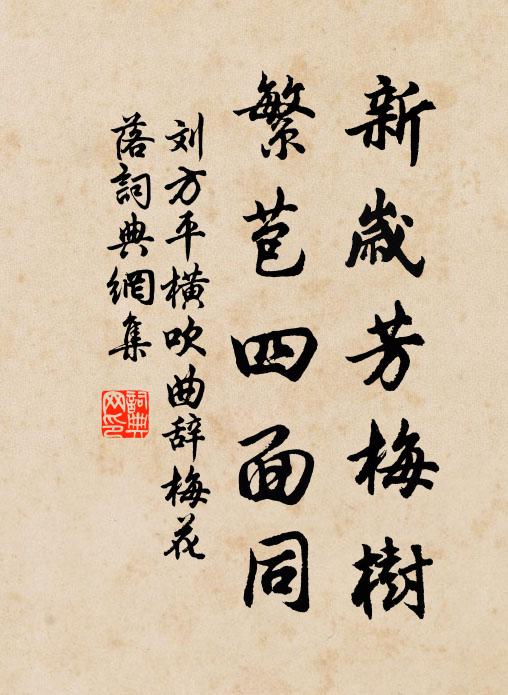 新歲芳梅樹
繁苞四面同
刘方平橫吹曲辞梅花
落詞典網集
詞典网印